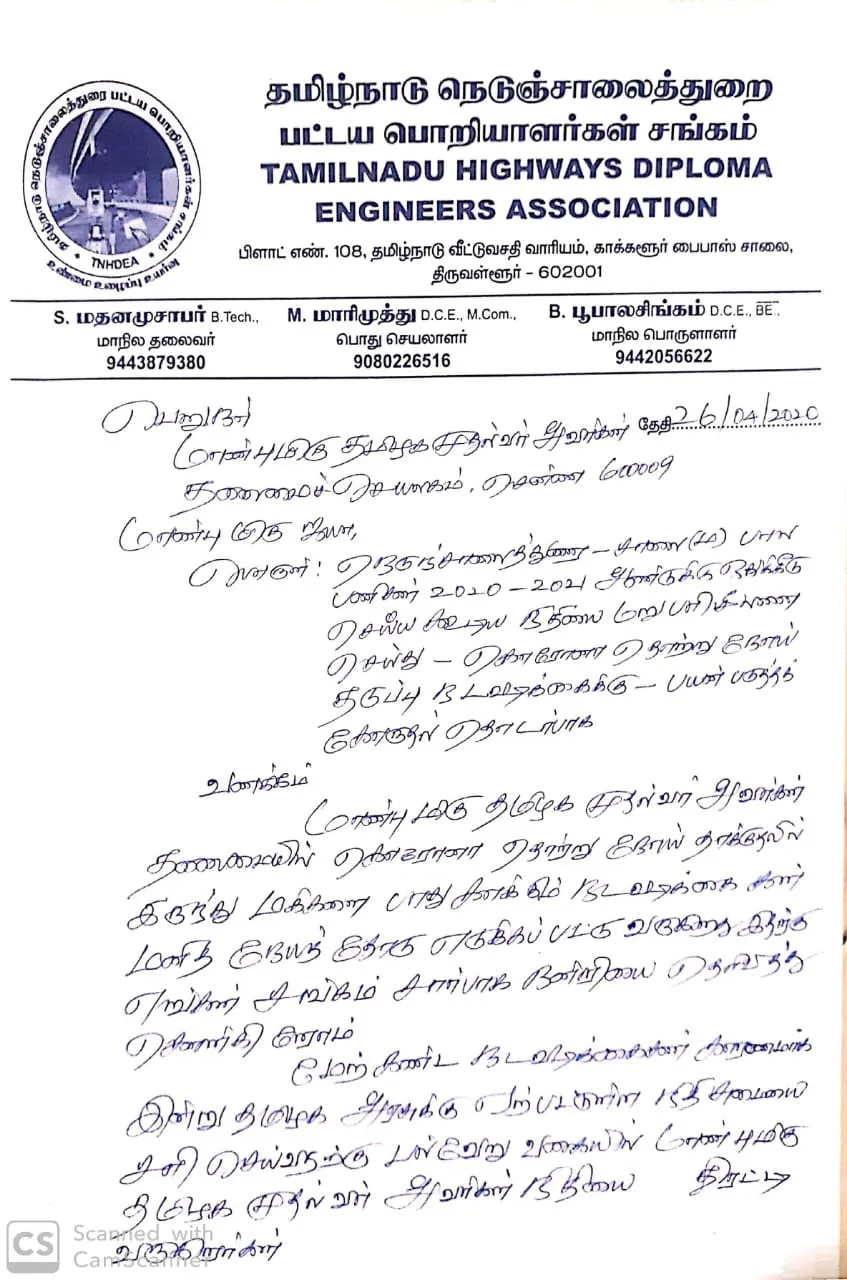 தமிழ்நாடு நெடுஞ்சாலைத்துறை பட்டய பொறியாளர்கள் சங்கம்
TNHDEA
உண்மை உழைப்பு உயர்வு
தமிழ்நாடு நெடுஞ்சாலைத்துறை
பட்டய பொறியாளர்கள் சங்கம்
TAMILNADU HIGHWAYS DIPLOMA
ENGINEERS ASSOCIATION
பிளாட் எண். 108, தமிழ்நாடு வீட்டுவசதி வாரியம், காக்களூர் பைபாஸ் சாலை,
திருவள்ளூர் - 602001
S. மதனமுசாபர் B.Tech., M. மாரிமுத்து D.C.E., M.Com., B. பூபாலசிங்கம் D.C.E., BE.,
மாநில தலைவர் பொது செயலாளர் மாநில பொருளாளர்
9443879380 9080226516 9442056622
பெறுநர்
தேதி 26/04/2020
மாண்புமிகு தமிழக முதல்வர் அவர்கள்
தலைமைச் செயலகம், சென்னை 600009
மாண்புமிகு ஐயா,
பொருள்: நெடுஞ்சாலைத்துறை – சாலை (ம) பால
பணிகள் 2020-2021 ஆண்டுக்கு ஒதுக்கீடு
செய்ய கூடிய நிதியை மறு பரிசீலனை
செய்து – கொரோனா தொற்று நோய்
தடுப்பு நடவடிக்கைக்கு – பயன் படுத்தக்
கோருதல் தொடர்பாக
வணக்கம்
மாண்புமிகு தமிழக முதல்வர் அவர்கள்
தலைமையில் கொரோனா தொற்று நோய் தாக்குதலில்
இருந்து மக்களை பாதுகாக்கும் நடவடிக்கை கள்
மனித நேயத் தோடு எடுக்கப் பட்டு வருகிறது இதற்கு
எங்கள் சங்கம் சார்பாக நன்றியை தெரிவித்து
கொள்கிறோம்
மேற் கண்ட நடவடிக்கைகள் காரணமாக
இன்று தமிழக அரசுக்கு ஏற்பட்டுள்ள நிதி சுமையை
சரி செய்வதற்கு பல்வேறு வகையில் மாண்புமிகு
தமிழக முதல்வர் அவர்கள் நிதியை திரட்டி
வருகிறார்கள்
CS Scanned with
CamScanner